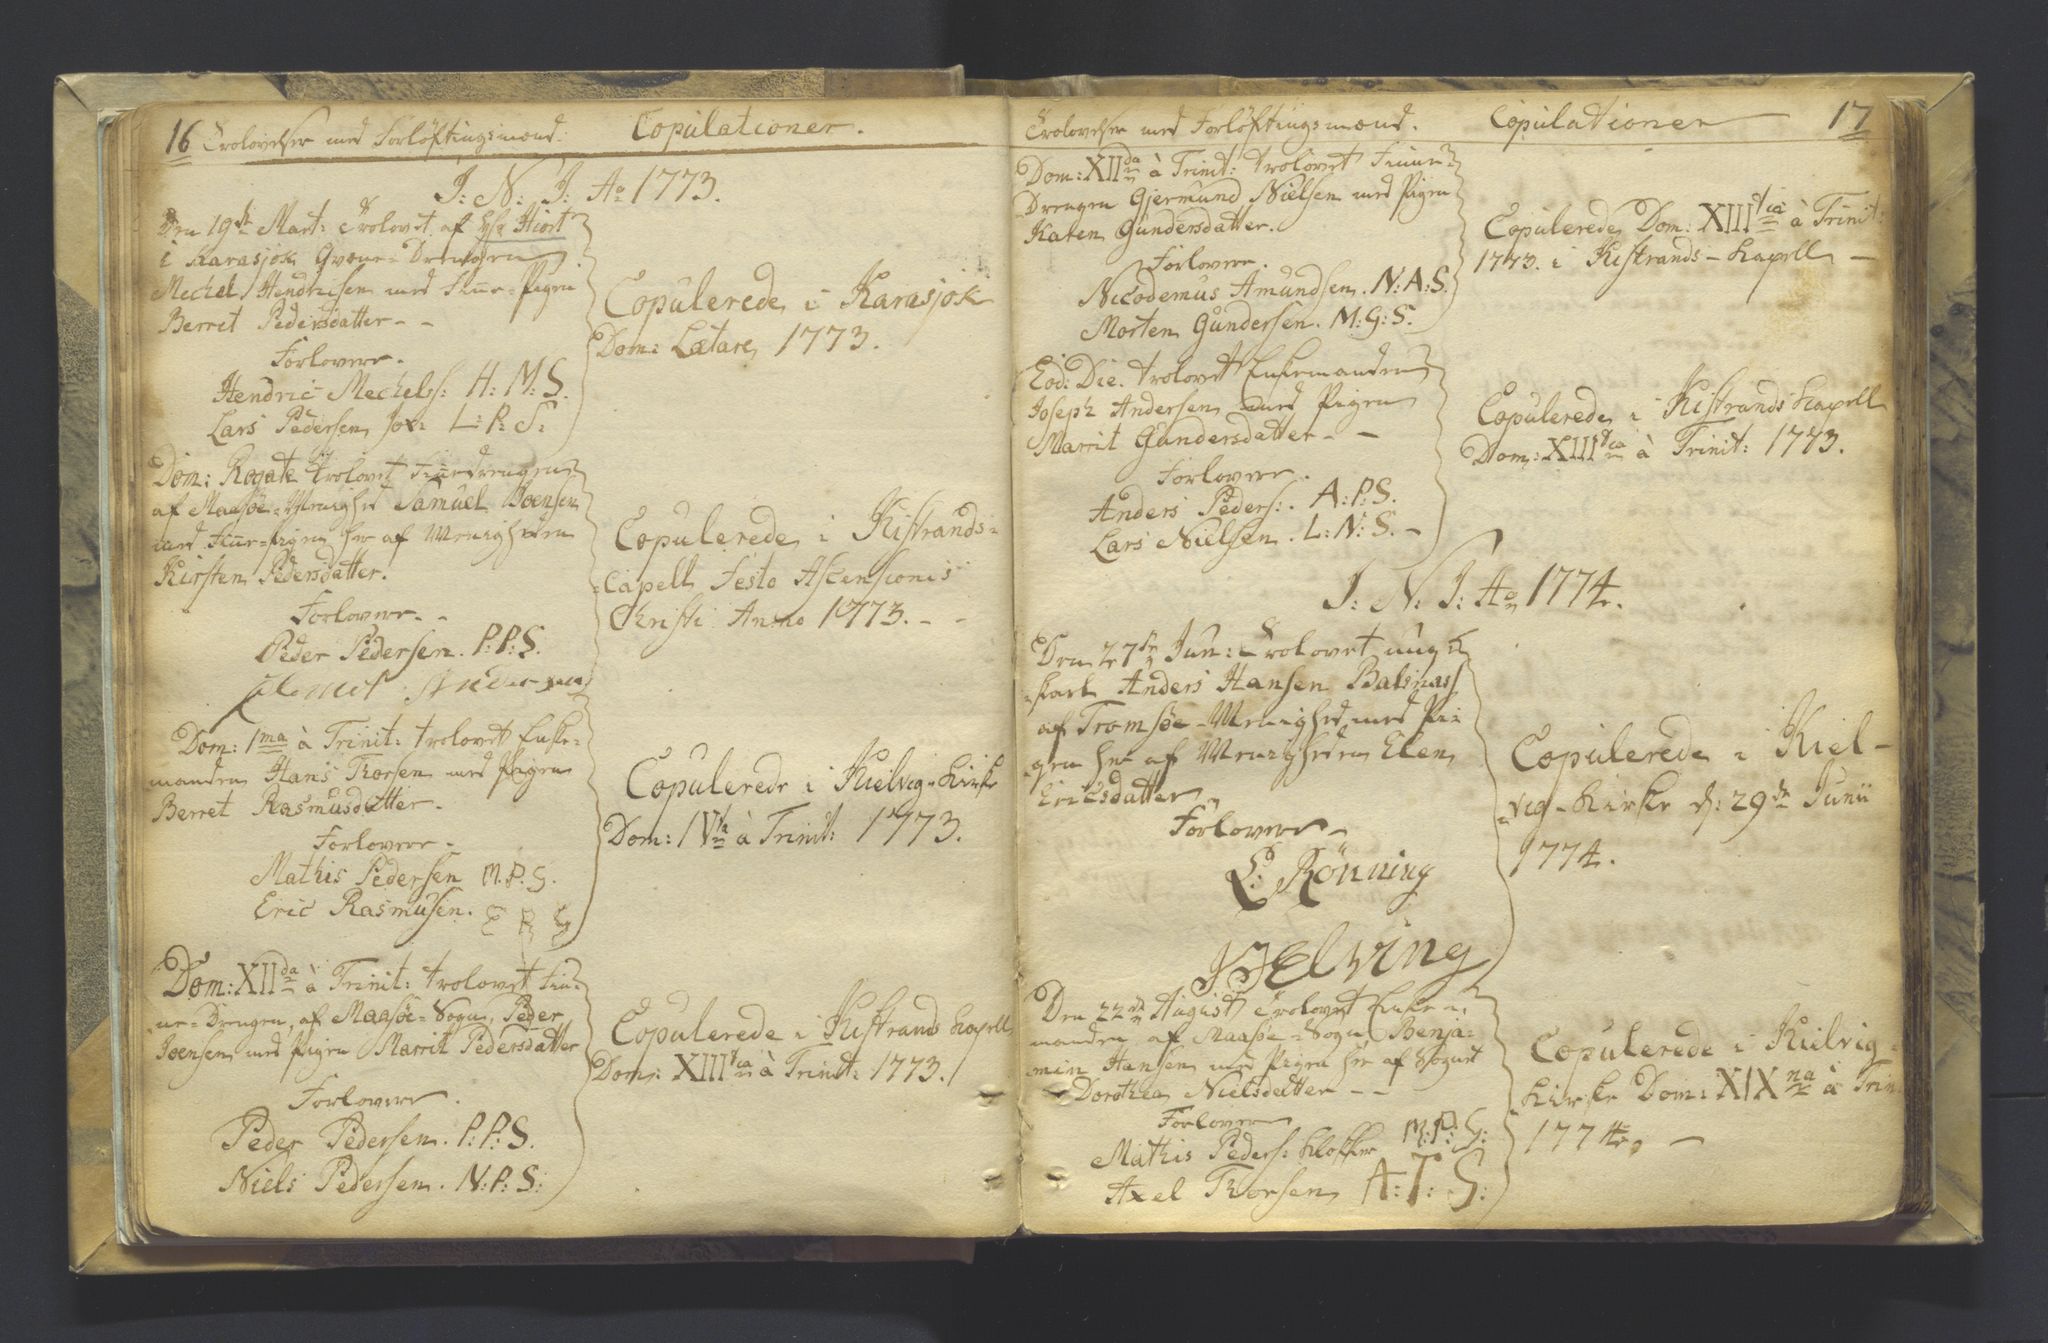 16 Trolovelser med Forlöftingsmænd.
Copulationer.
J: N: J: Ao 1773.
Den 19de Mart: Trolovet af Hr Hiort
i Karasjok Qvæne-Drengen
Mechel Hendricsen med Finne-Pigen
Berret Pedersdatter - -
Forlovere.
Hendric Mechels: H: M: S.
Lars Pedersen Jox: L: P: S:
Copulerede i Karasjok
Dom: Lætare 1773.
Dom: Rogate trolovet Finnedrengen
af Maasöe-Menighed Samuel Joensen
med Finne-Pigen her af Menigheden
Kirsten Pedersdatter.
Forlovere - -
Peder Pedersen. P:P:S.
Copulerede i Kistrands-
Capell Festo Ascensionis
Christi Anno 1773. - -
Dom: 1ma à Trinit: trolovet Enke-
manden Hans Thorsen med Pigen
Berret Rasmusdatter.
Forlovere -
Mathis Pedersen M.P.S.
Eric Rasmusen. E R S
Copulerede i Kielvig-Kirke
Dom: IVta à Trinit: 1773.
Dom: XIIda à Trinit: trolovet Fin-
ne-Drengen, af Maasöe-Sogn, Peder
Joensen med Pigen Marrit Pedersdatter
Forlovere.
Peder Pedersen. P:P:S.
Niels Pedersen. N:P:S:
Copulerede i Kistrands Kapell
Dom: XIIItia à Trinit: 1773.
Trolovelser med Forlöftingsmænd.
Copulationer
17
Dom: XIIda à Trinit: trolovet Finne-
Drengen Gjermund Nielsen med Pigen
Karen Gundersdatter.
Forlovere.
Nicodemus Amundsen. N:A:S.
Morten Gundersen. M:G:S.
Copulerede Dom: XIIItia à Trinit:
1773. i Kistrands-Kapell -
Eod: Die. trolovet Enkemanden
Joseph Andersen med Pigen
Marrit Gundersdatter - -
Forlovere.
Anders Peders:. A:P:S.
Lars Nielsen. L:N:S. -
Copulerede i Kistrands Kapell
Dom: XIIItia à Trinit: 1773.
J: N: J: Ao 1774.
Den 27de Jun: Trolovet ung
karl Anders Hansen
af Tromsöe-Menighed med Pi-
gen her af Menigheden Elen
Ericsdatter
Forlovere -
Rönning
Elving
Copulerede i Kiel-
vig-Kirke d: 29de Junii
1774.
Den 22de August Trolovet Enke-
manden af Maasöe-Sogn Benja-
min Hansen med Pigen her af Sognet
Dorothea Nielsdatter - -
Forlovere
Mathis Peders: Klokker M:P:S:
Axel Thorsen A:T:S:
Copulerede i Kielvig-
Kirke Dom: XIXna à Trin:
1774. -